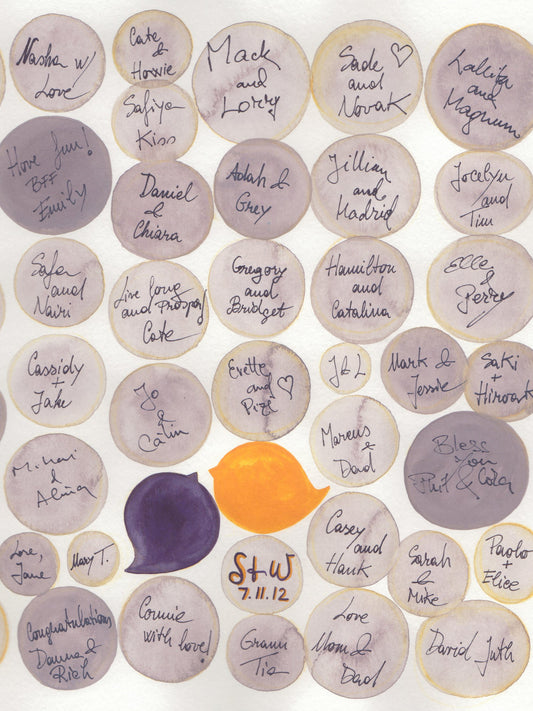 Nasha w/
Love
Cate
&
Howie
Mack
and
Lorry
Sade
and
Novak
Lalita
and
Magnum
Safiya
Kiss
Have fun!
BFF
Emily
Daniel
&
Chiara
Adah &
Grey
Jillian
and
Madrid
Jocelyn
and
Tim
Safa
and
Nairi
Live long
and Prosper
Cate
Gregory
and
Bridget
Hamilton
and
Catalina
Elle
&
Perry
Cassidy
+
Jake
Jo
&
Colin
Evette
and
Pizi
J & L
Mark &
Jessie
Saki
+
Hiroaki
Mihai
&
Alina
Marcus
&
Dad
Bless
You
Phil & Cola
Love,
Jane
Mary T.
S+W
7.11.12
Casey
and
Hank
Sarah
&
Mike
Paolo
+
Elice
Congratulations
Danna &
Rich
Connie
with love!
Gramm
Tia
Love
Mom &
Dad
David Juth